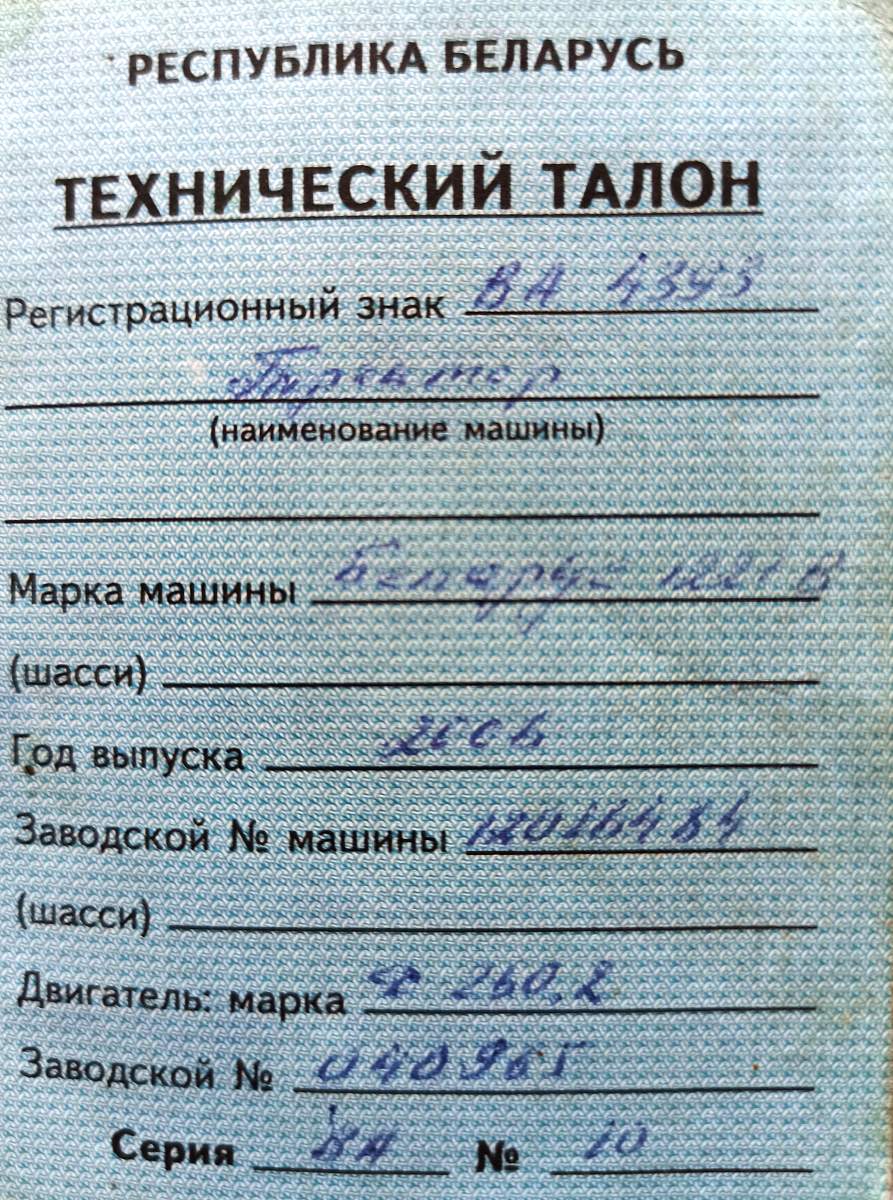 РЕСПУБЛИКА БЕЛАРУСЬ
ТЕХНИЧЕСКИЙ ТАЛОН
Регистрационный знак ВА 4393
Трактор
(наименование машины)
Марка машины Беларус 1221 В
(шасси)
Год выпуска
Заводской № машины
(шасси)
Двигатель: марка Д 260.2
Заводской № 040965
Серия ВА № 10